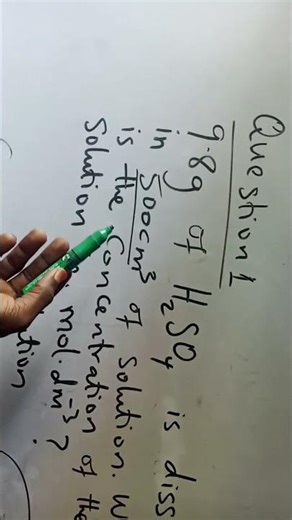 Question 1
9.8g of H₂SO₄ is diss
in 500cm³ of Solution. W
is the Concentration of the
Solution mol.dm⁻³?